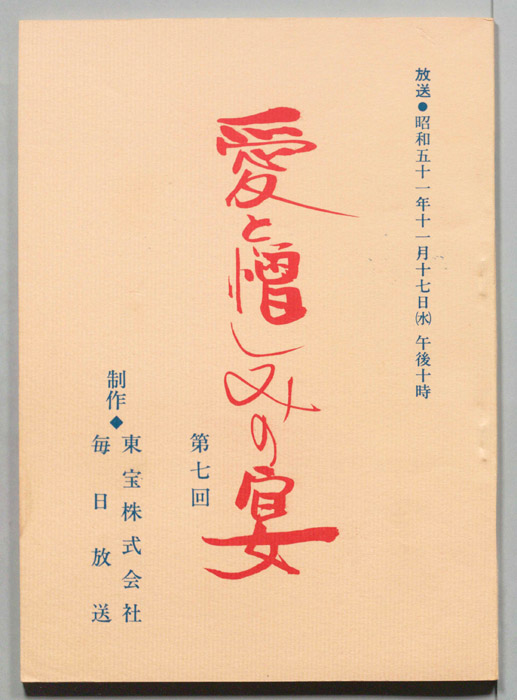 放送●昭和五十一年十一月十七日㈬ 午後十時
愛と憎しみの宴
第七回
制作◆
東宝株式会社
毎日放送